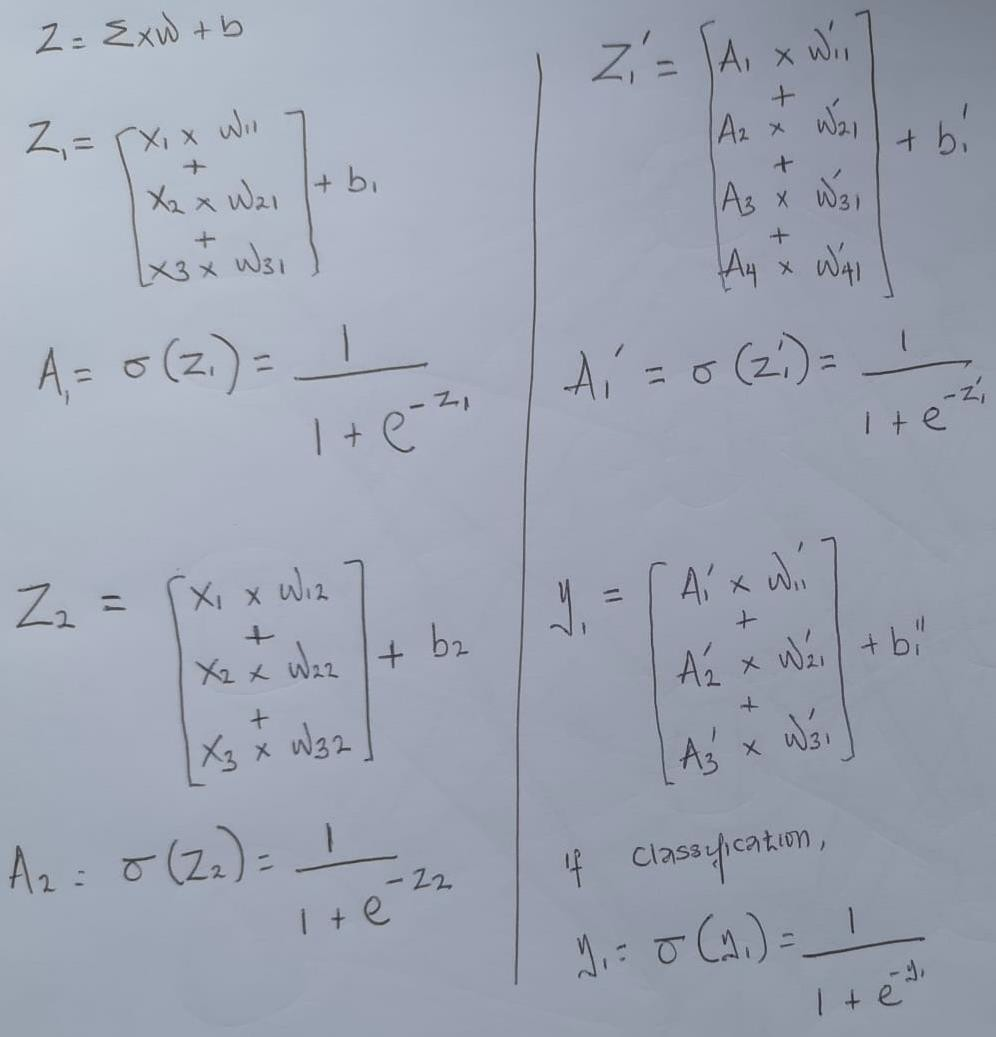 Z = Σxw + b
Z₁ = [x₁ × w₁₁
+
x₂ × w₂₁
+
x₃ × w₃₁] + b₁
A₁ = σ(Z₁) = 1 / (1 + e^(-Z₁))
Z₂ = [x₁ × w₁₂
+
x₂ × w₂₂
+
x₃ × w₃₂] + b₂
A₂ = σ(Z₂) = 1 / (1 + e^(-Z₂))
Z₁' = [A₁ × w'₁₁
+
A₂ × w'₂₁
+
A₃ × w'₃₁
+
A₄ × w'₄₁] + b₁'
A₁' = σ(Z₁') = 1 / (1 + e^(-Z₁'))
y₁ = [A₁' × w₁₁'
+
A₂' × w₂₁'
+
A₃' × w₃₁'] + b₁''
if classification,
y₁ = σ(y₁) = 1 / (1 + e^(-y₁))